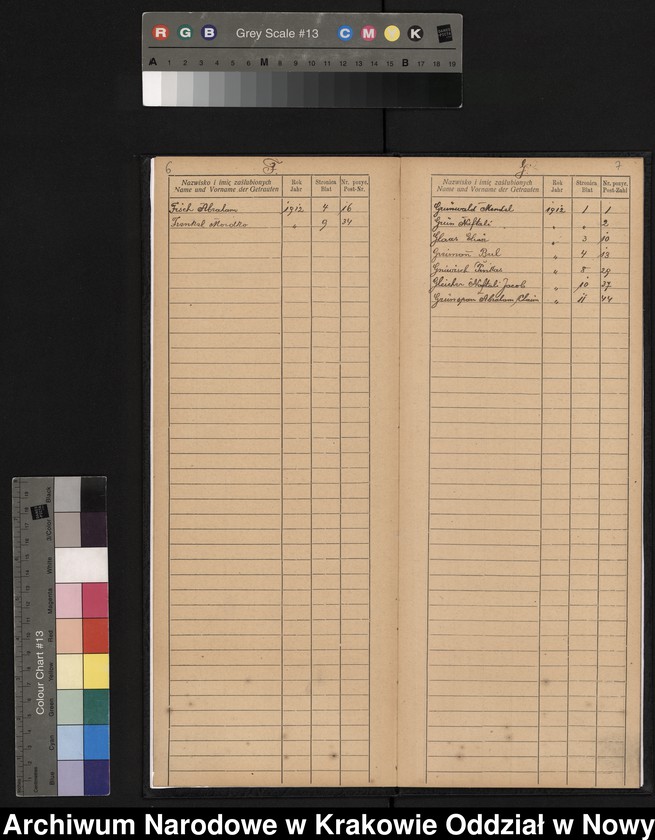 R G B Grey Scale #13 C M Y K
A 1 2 3 4 5 6 M 8 9 10 11 12 13 14 15 B 17 18 19
6 F
Nazwisko i imię zaślubionych Rok Stronica Nr. pozyc.
Name und Vorname der Getrauten Jahr Blat Post-Nr.
Frisch Abraham 1912 4 16
Frenkel Mordko " 9 34
G 7
Nazwisko i imię zaślubionych Rok Stronica Nr. pozyc.
Name und Vorname der Getrauten Jahr Blat Post-Zahl
Grünwald Mendel 1912 1 1
Grün Naftali " " 2
Glaar " 3 10
" 4 13
" 8 29
Gleicher Naftali Jacob " 10 37
Abraham Chaim " 11 44
Colour Chart #13
Blue Cyan Green Yellow Red Magenta White 3/Color Black
Centimetres
Archiwum Narodowe w Krakowie Oddział w Nowy